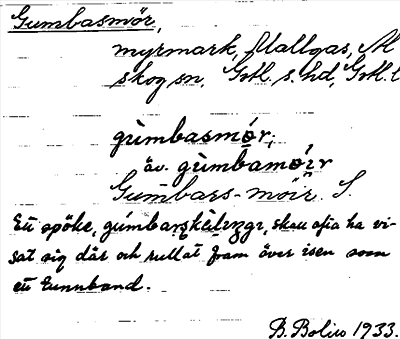 Gumbasmör,
myrmark, Mallgas, Al
skog sn, Gotl. s. hd, Gotl. l
gùmbasmór;
äv. gùmbamóìr
Gumbars-möir. S.
Ett spöke, gúmbarskèlengr, skall ofta ha vi-
sat sig där och rullat fram över isen som
ett tunnband.
B. Bolin 1933.